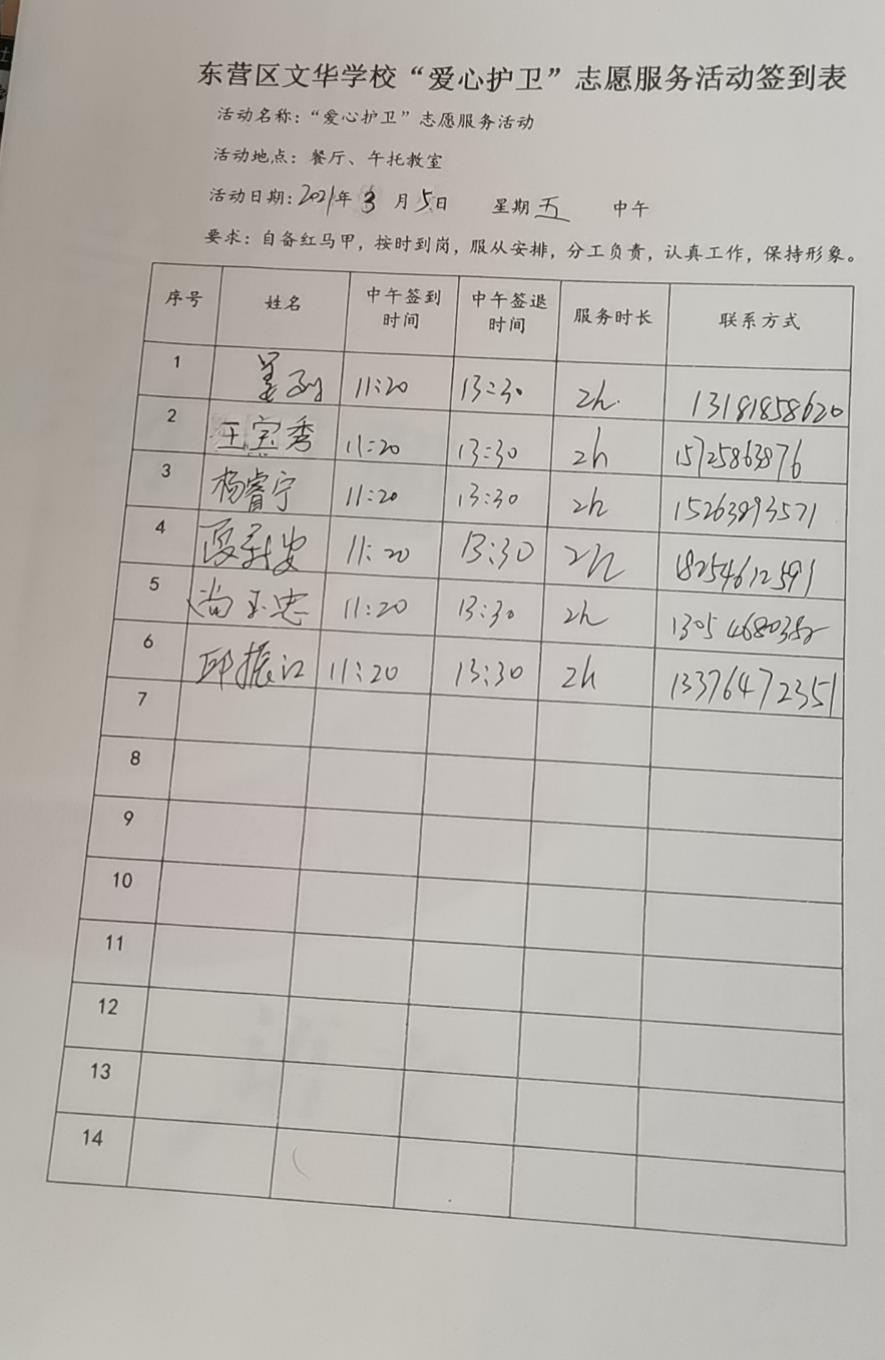 东营区文华学校“爱心护卫”志愿服务活动签到表
活动名称：“爱心护卫”志愿服务活动
活动地点：餐厅、午托教室
活动日期：2021年3月5日 星期五 中午
要求：自备红马甲，按时到岗，服从安排，分工负责，认真工作，保持形象。
序号 姓名 中午签到时间 中午签退时间 服务时长 联系方式
1 11:20 13:30 2h. 13181858620
2 王宝秀 11:20 13:30 2h 15725863876
3 杨睿宁 11:20 13:30 2h 15263893571
4 11:20 13:30 2h 18254612591
5 尚玉忠 11:20 13:30 2h
6 邱振江 11:20 13:30 2h 13376472351
7
8
9
10
11
12
13
14